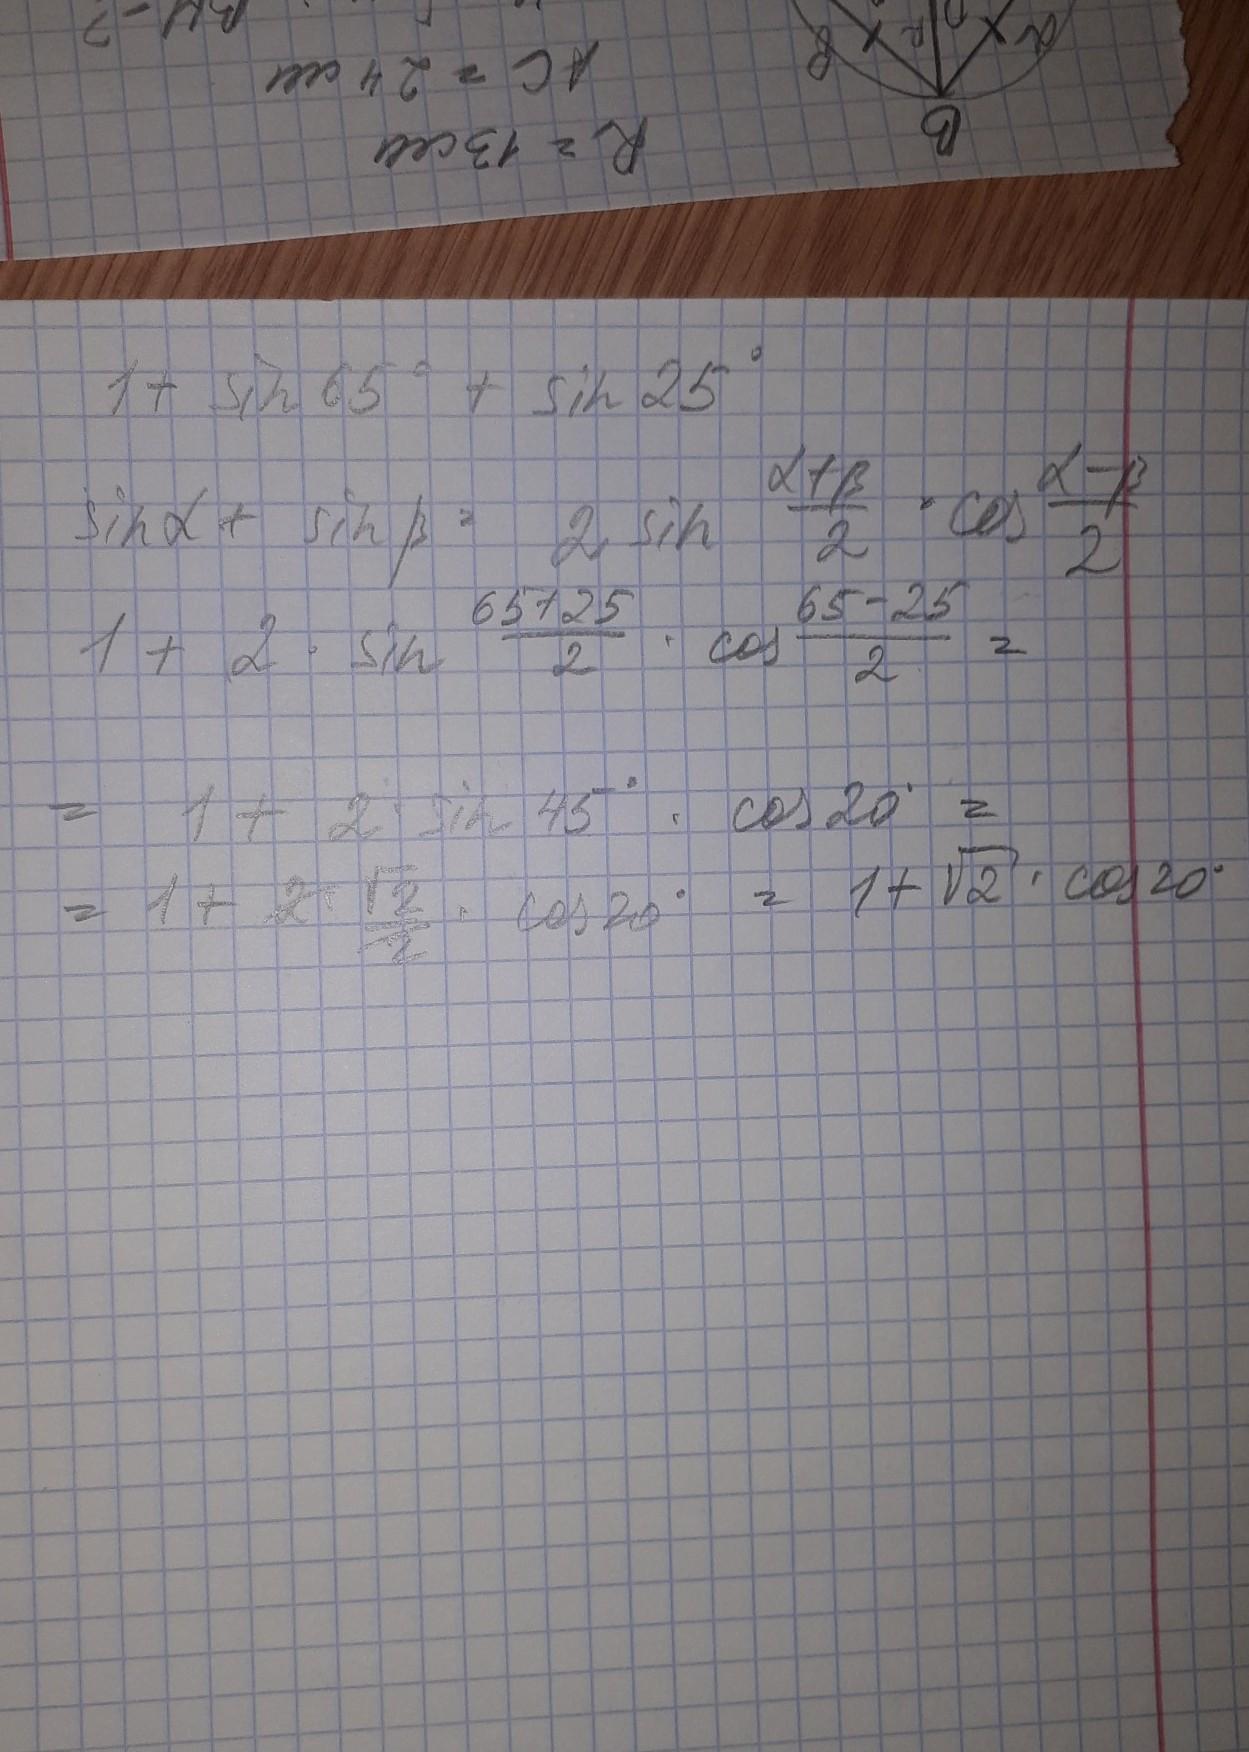 BH - ?
AC = 24 см
R = 13 см
B
1 + sin 65° + sin 25°
sin α + sin β = 2 sin (α+β)/2 · cos (α-β)/2
1 + 2 · sin (65+25)/2 · cos (65-25)/2 =
= 1 + 2 · sin 45° · cos 20° =
= 1 + 2 · √2/2 · cos 20° = 1 + √2 · cos 20°